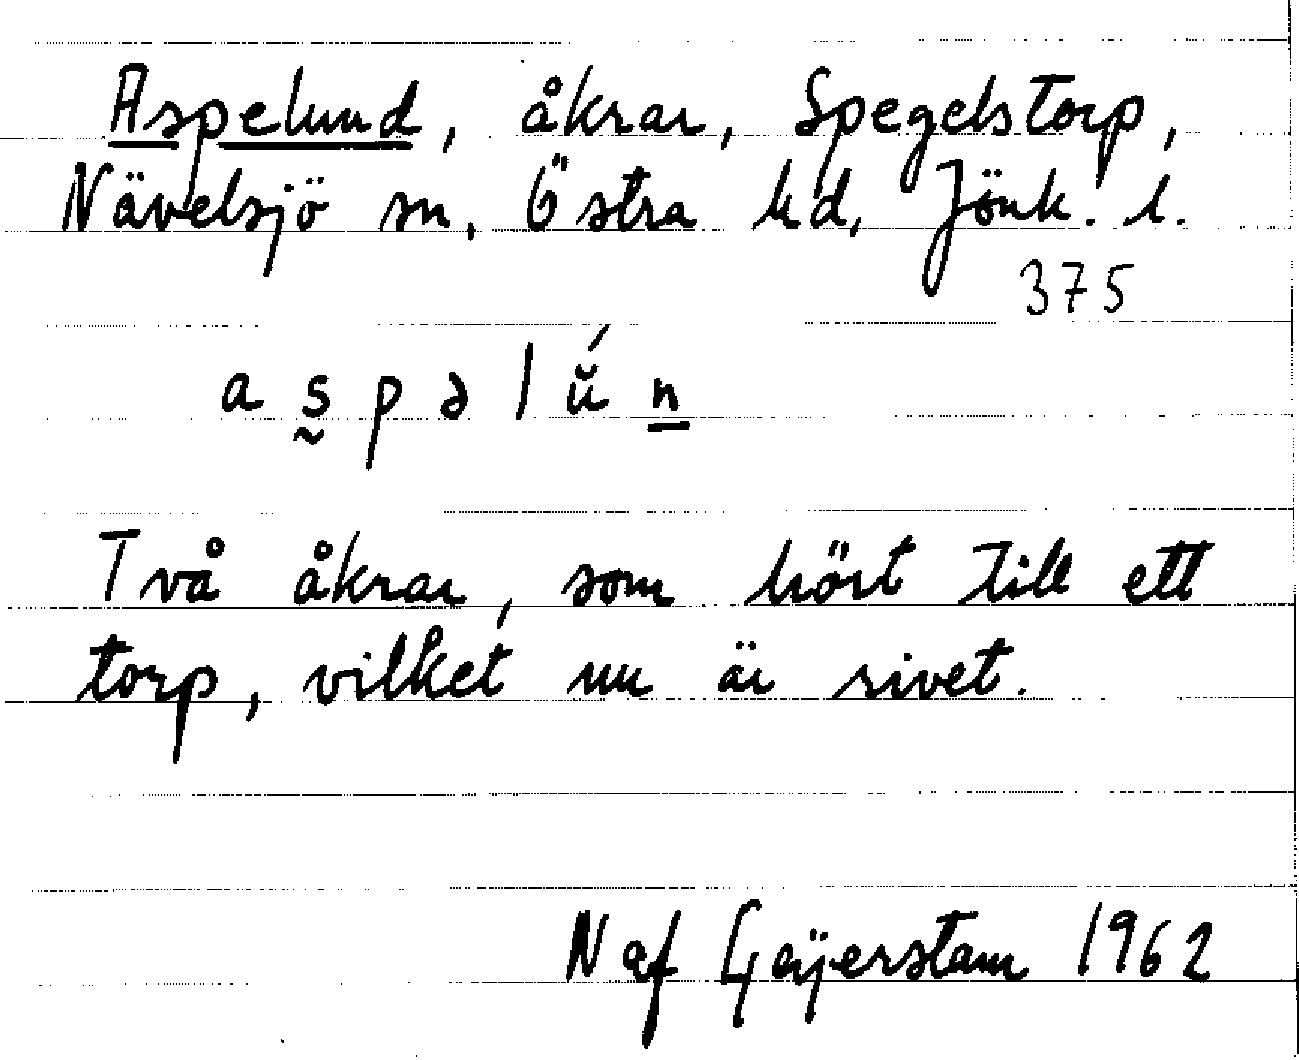 Aspelund, åkrar, Spegelstorp,
Nävelsjö sn, Östra hd, Jönk. l.
375
a s̰ p ə l ŭ́ n̲
Två åkrar, som hört till ett
torp, vilket nu är rivet.
N af Geijerstam 1962